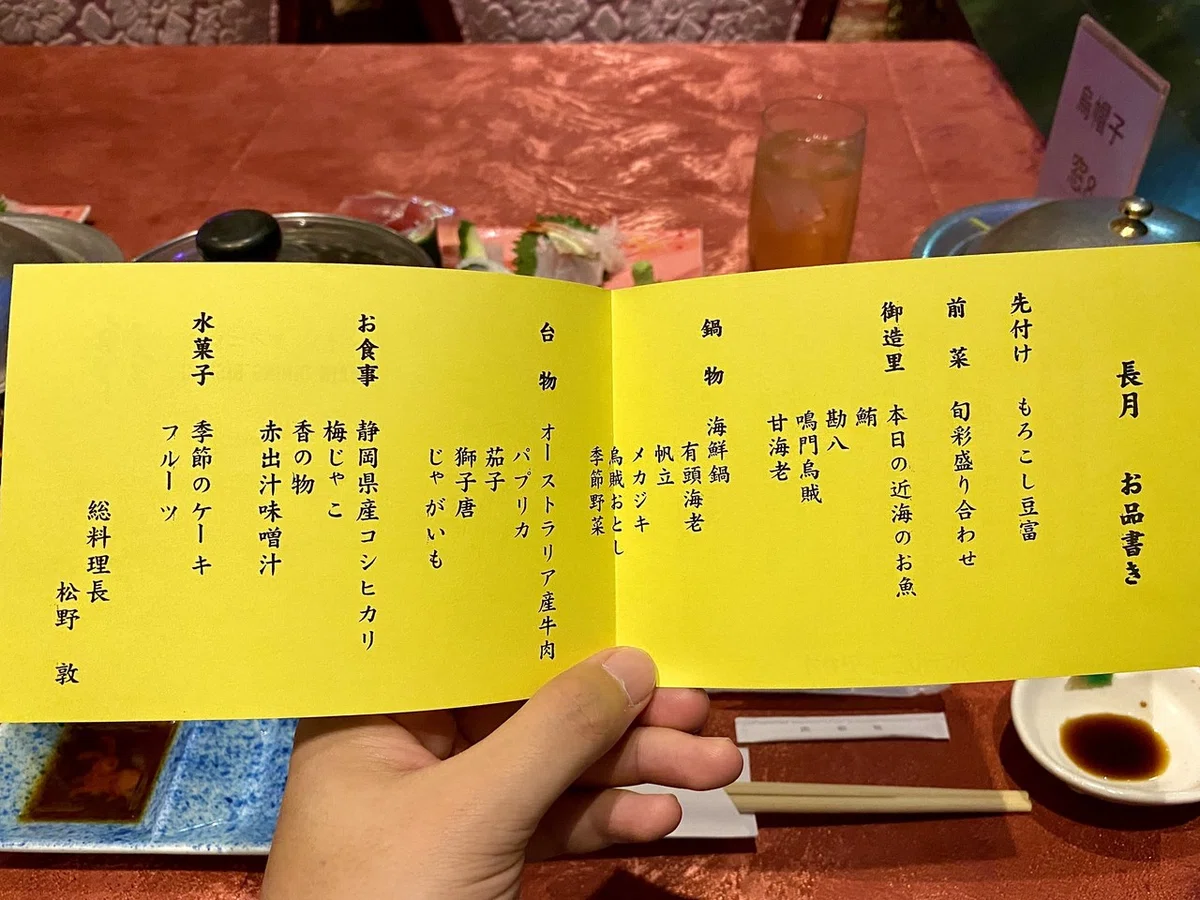 長月 お品書き
先付け もろこし豆富
前菜 旬彩盛り合わせ
御造里 本日の近海のお魚
鮪
勘八
鳴門烏賊
甘海老
鍋物 海鮮鍋
有頭海老
帆立
メカジキ
烏賊おとし
季節野菜
台物 オーストラリア産牛肉
パプリカ
茄子
獅子唐
じゃがいも
お食事 静岡県産コシヒカリ
梅じゃこ
香の物
赤出汁味噌汁
水菓子 季節のケーキ
フルーツ
総料理長
松野 敦
烏帽子